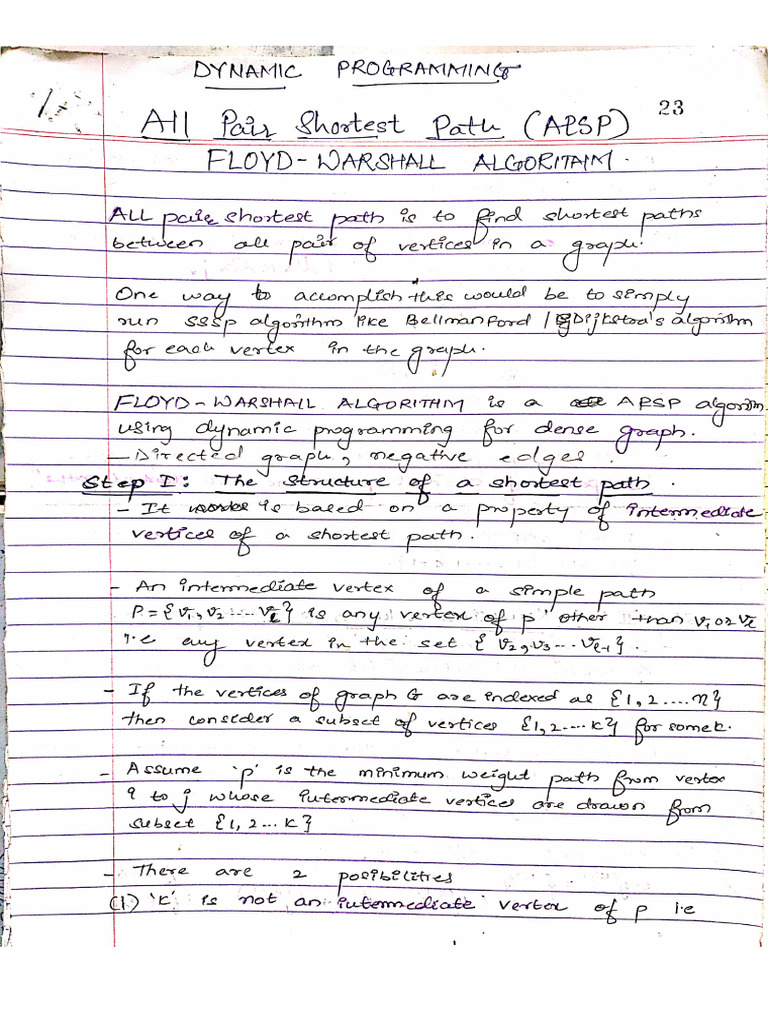 DYNAMIC PROGRAMMING
23
All Pair Shortest Path (APSP)
FLOYD-WARSHALL ALGORITHM.
ALL pair shortest path is to find shortest paths
between all pair of vertices in a graph.
One way to accomplish this would be to simply
run SSSP algorithm like Bellmanford / Dijkstra's algorithm
for each vertex in the graph.
FLOYD-WARSHALL ALGORITHM is a APSP algorithm
using dynamic programming for dense graph.
- Directed graph, negative edges.
Step I: The structure of a shortest path.
- It is based on a property of intermediate
vertices of a shortest path.
- An intermediate vertex of a simple path
P = {v1, v2 .... vl} is any vertex of p' other than v1 or vl
i.e any vertex in the set {v2, v3 ... vl-1}.
- If the vertices of graph G are indexed as {1, 2 .... n}
then consider a subset of vertices {1, 2 .... k} for some k.
- Assume 'p' is the minimum weight path from vertex
i to j whose intermediate vertices are drawn from
subset {1, 2 ... k}
- There are 2 posibilities
(1) 'k' is not an intermediate vertex of p i.e